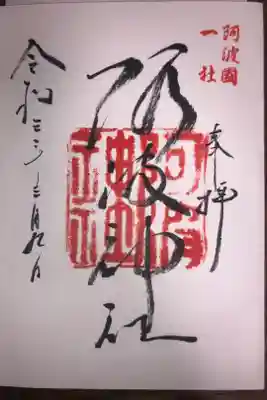 阿波國
一社
奉拝
阿波神社
令和三年三月九日